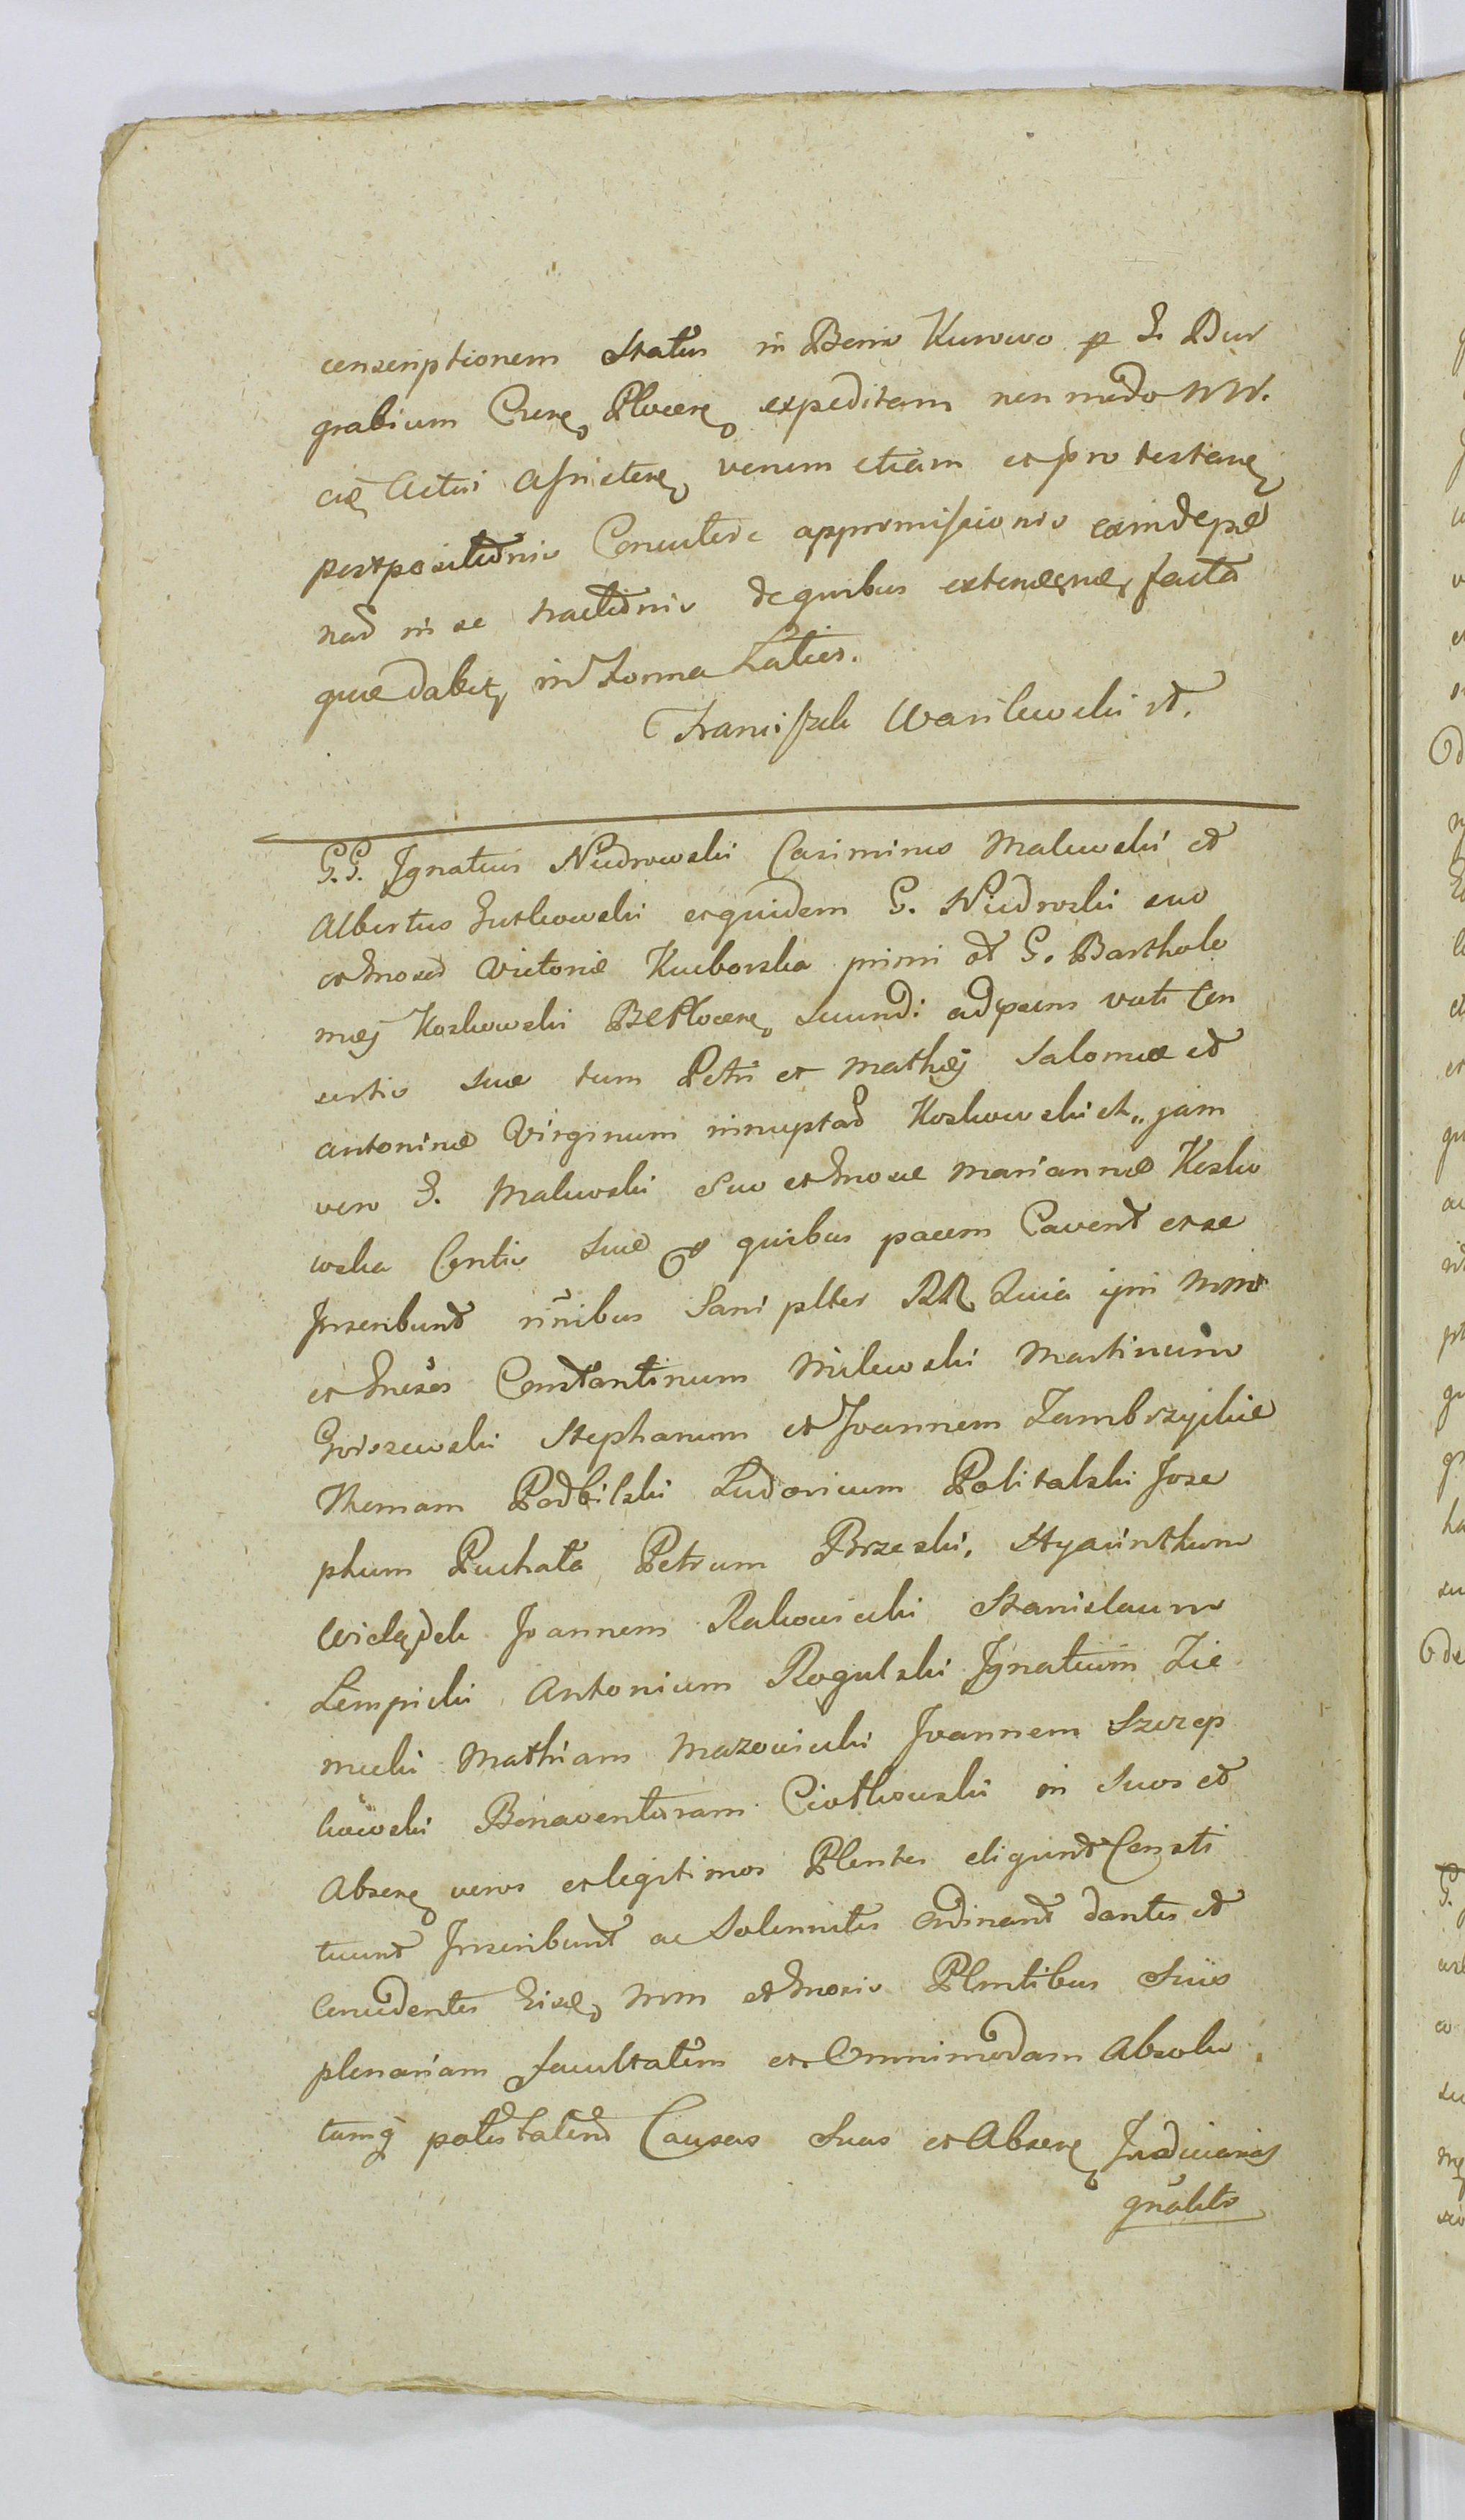 conscriptionem Status in Bonis Kurowo p G. Bur
grabium Crens Plocens expeditam non modo NW.
cie Actui Assistere verum etiam et pro testare
postpositionis Concutere appromissionis eamde
nad in se tractionis de quibus facta
que dabit in Forma Latius.
Franciszek Wasilewski
G.G. Ignatius Niedrowski Casimirus Malewski et
Albertus Gutkowski et quidem G. Niedroski suo
et Gnosae Victoriae Kuiborska primi et G. Bartholo
maei Koskowski Plocens secundi ad praens voti Con
sortis suae tum Petri et Mathaei Salomeae et
Antoninae Virginum innuptar Koskowskich jam
vero G. Malewski suo et Gnosae Mariannae Kosko
wska Contis suae quibus pacem Cavent et se
Inscribunt nnibus Sani pltes RR Quia ipsi MM
et Gnosos Constantinum Milewski Martinum
Goroszewski Stephanum et Joannem Zambrzyckie
Thomam Podbilski Ludovicum Politalski Jose
phum Puchała Petrum Brzeski, Hyacinthum
Joannem Rakowiecki Stanislaum
Lempicki Antonium Rogulski Ignatium Zie
mecki Mathiam Mazowiecki Joannem Szczep
kowski Bonaventuram Ciotkowski in suos et
Absens veros et legitimos Plentes eligunt Consti
tuunt Inscribunt ac Solenniter Ordinant dantes et
Concedentes Eisd MM et Gnosis Plentibus Suis
plenariam facultatem et Omnimodam Absolu
tamq potestatem Causas Suas et Absens Judiciarias
gnaliter